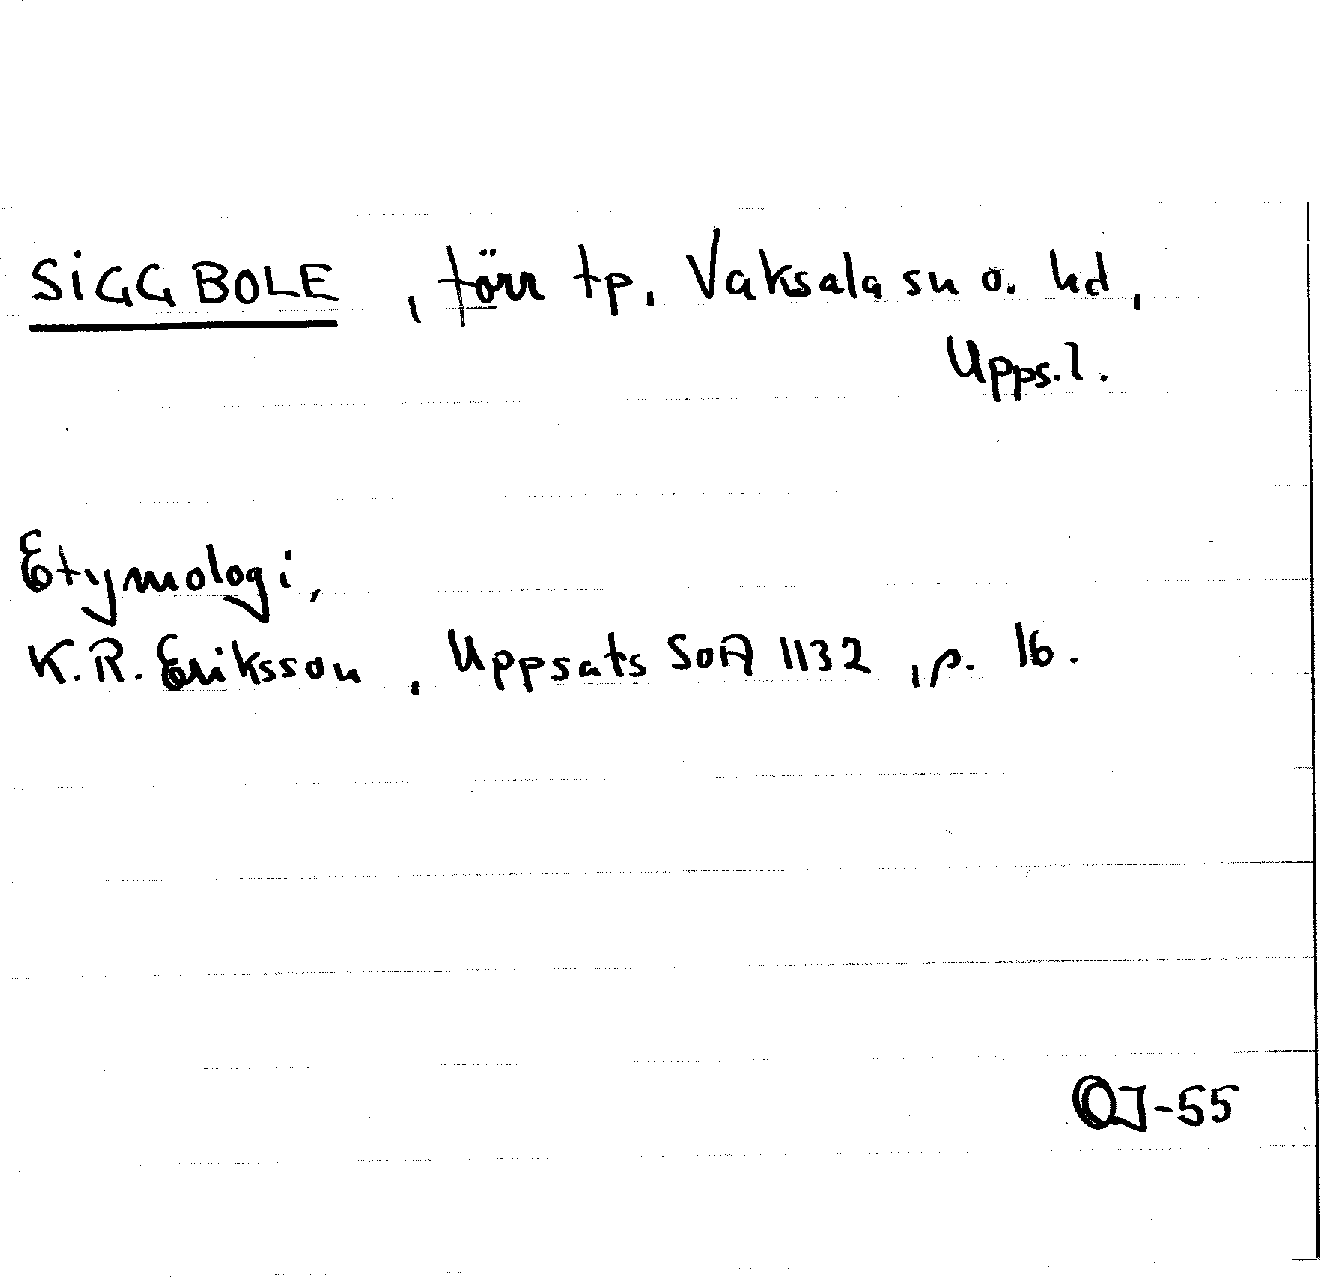 SIGGBOLE, törr tp, Vaksala sn o. hd,
Upps.l.
Etymologi,
K.R. Eriksson, Uppsats SOA 1132, p. 16.
OJ-55